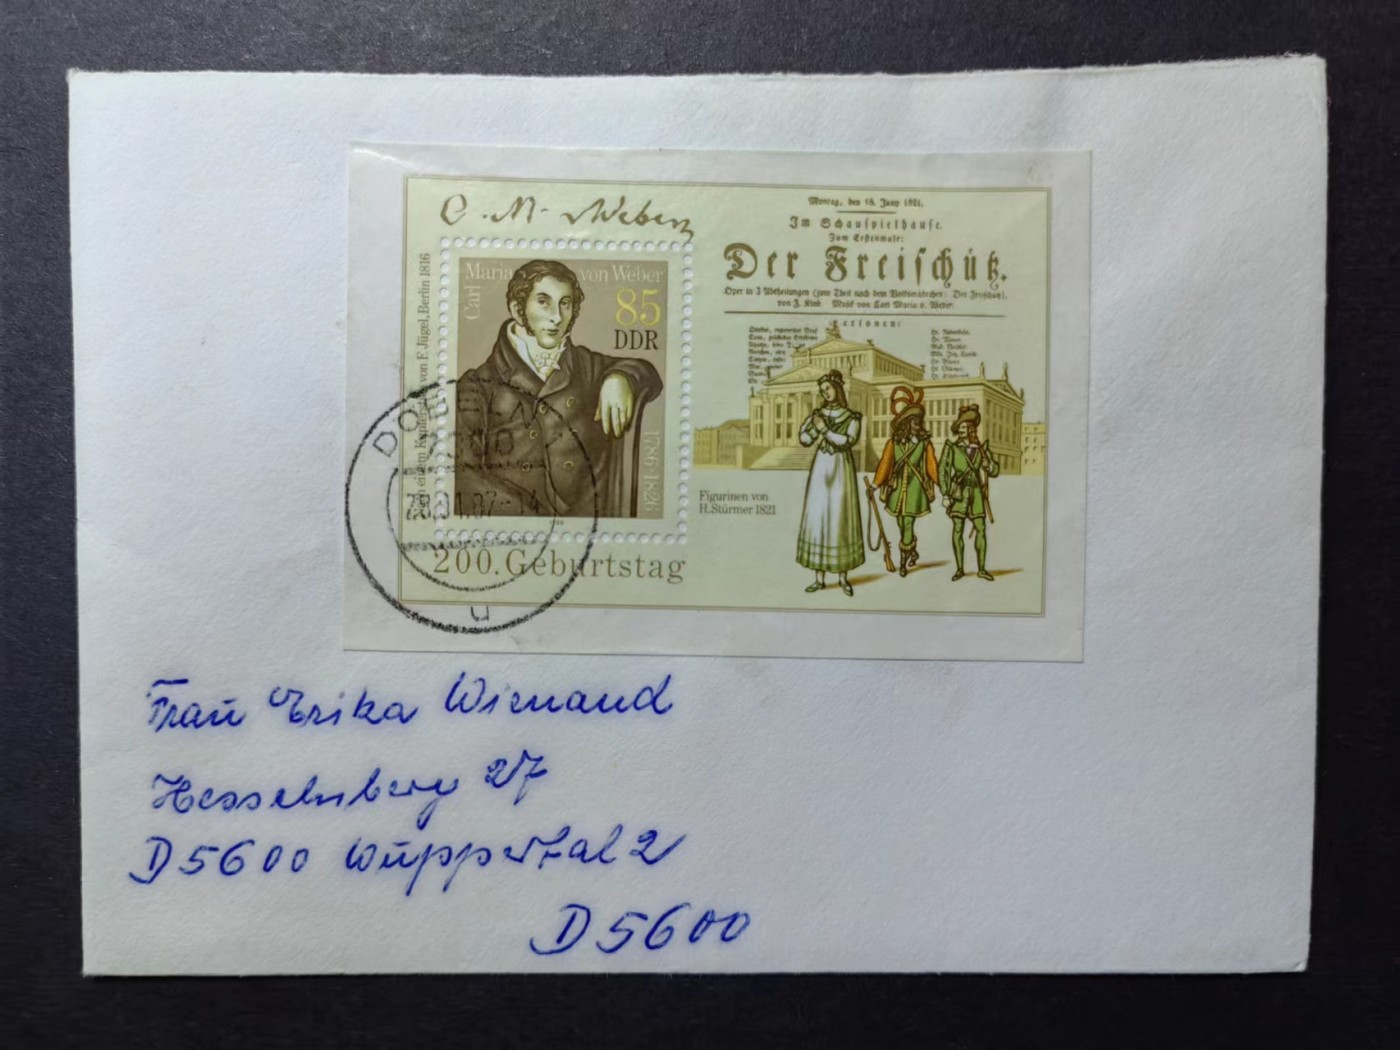 C. M. v Weber
Carl Maria von Weber
85
DDR
1786-1826
von F. Jügel, Berlin 1816
200. Geburtstag
Montag, den 18. Juny 1821.
Im Schauspielhause.
Zum Erstenmale:
Der Freischütz.
Oper in 3 Abtheilungen (zum Theil nach dem Volksmährchen: Der Freischütz),
von F. Kind. Musik von Carl Maria v. Weber.
Personen:
Figurinen von
H. Stürmer 1821
28.01.87-14
u
Frau Erika Wienand
Hesselnberg 27
D 5600 Wuppertal 2
D 5600